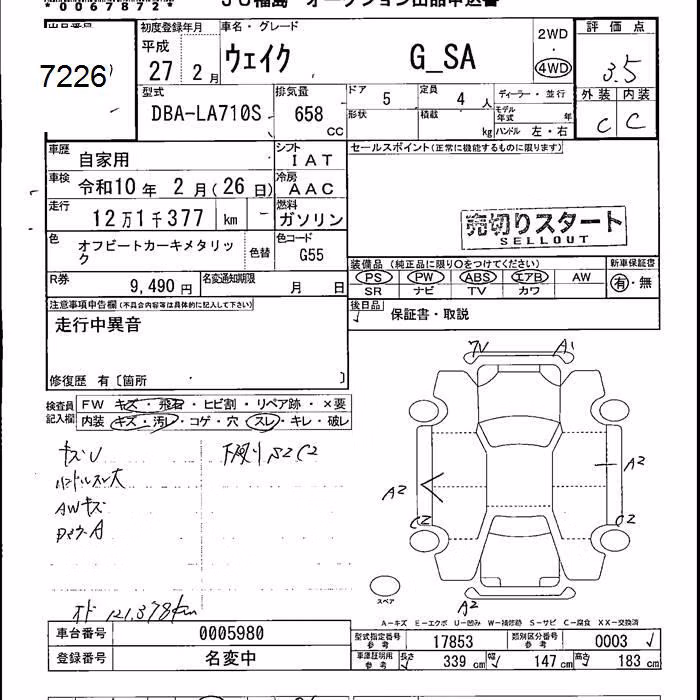 *0067872*
JU福島 オークション出品申込書
出品番号
7226
初度登録年月
平成
27 2月
車名・グレード
ウェイク G_SA
2WD
4WD
評価点
3.5
外装 内装
C C
型式
DBA-LA710S
排気量
658
CC
ドア 5
定員 4 人
形状
積載 kg
ディーラー・並行
モデル年式 年
ハンドル 左・右
車歴
自家用
シフト
IAT
車検
令和10年 2月(26日)
冷房
AAC
走行
12万1千377 km
燃料
ガソリン
色
オフビートカーキメタリック
色替
色コード
G55
R券
9,490円
名変通知期限
月 日
セールスポイント(正常に機能するものに限ります)
売切りスタート
SELLOUT
装備品 (純正品に限り○をつけてください)
PS PW ABS エアB AW
SR ナビ TV カワ
新車保証書
有・無
後日品
保証書・取説
注意事項申告欄(不具合内容等は具体的に記入して下さい)
走行中異音
修復歴 有〔箇所 〕
検査員記入欄
FW キズ・飛石・ヒビ割・リペア跡・×要
内装 キズ・汚レ・コゲ・穴 スレ・キレ・破レ
キズU
ハンドルスレ大
AWキズ
下廻り S2C2
オド 121,378km
A1
A2
A2
C2
C2
A2
スペア
A−キズ E−エクボ U−凹み W−補修跡 S−サビ C−腐食 XX−交換済
車台番号
0005980
登録番号
名変中
型式指定番号
参考
17853
類別区分番号
参考
0003
車庫証明用
参考
長さ 339 cm 幅 147 cm 高さ 183 cm